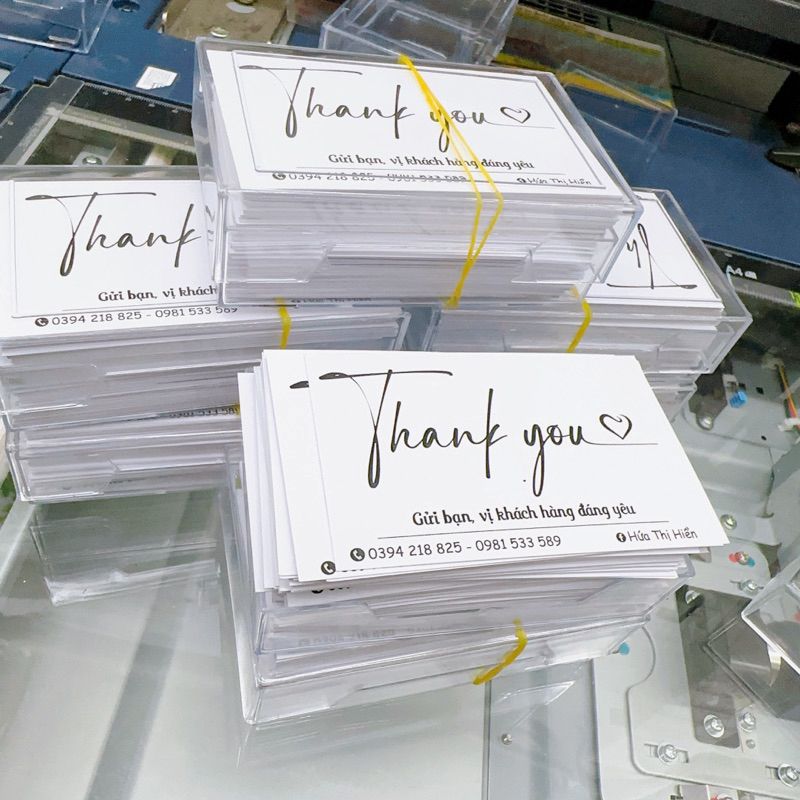 Thank you
Gửi bạn, vị khách hàng đáng yêu
0394 218 825 - 0981 533 589
Hứa Thị Hiền
Thank
Gửi bạn, vị khách
0394 218 825 - 0981 533 589
Hứa Thị Hiền
Thank you
Gửi bạn, vị khách hàng đáng yêu
0394 218 825 - 0981 533 589
Hứa Thị Hiền